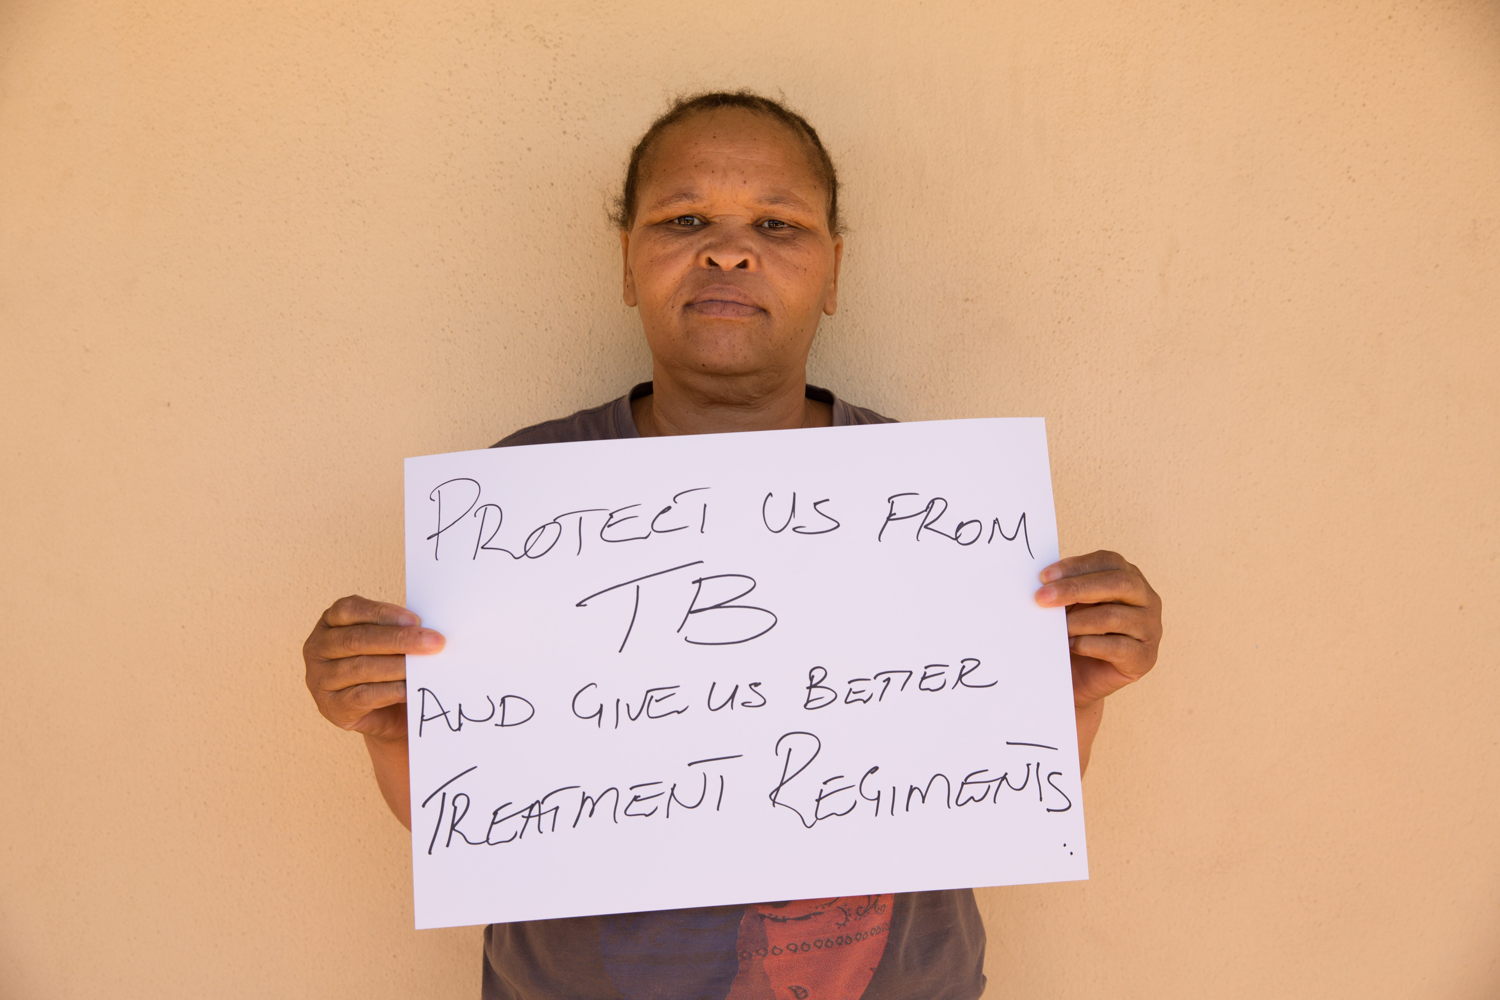 PROTECT US FROM
TB
AND GIVE US BETTER
TREATMENT REGIMENTS.